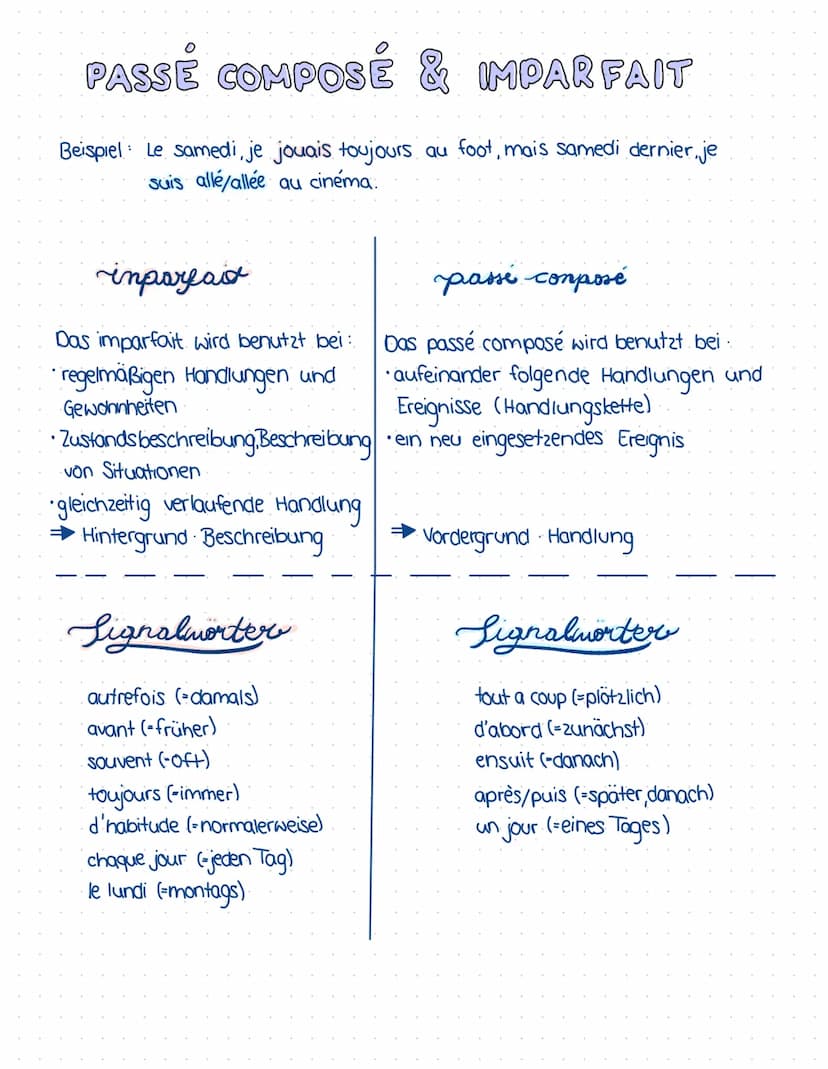 PASSÉ COMPOSÉ & IMPARFAIT
Beispiel: Le samedi, je jouais toujours au foot, mais samedi dernier, je
suis allé/allée au cinéma.
imparfait
Das imparfait wird benutzt bei:
· regelmäßigen Handlungen und
Gewohnheiten
· Zustandsbeschreibung, Beschreibung
von Situationen
· gleichzeitig verlaufende Handlung
⇒ Hintergrund · Beschreibung
passé composé
Das passé composé wird benutzt bei ·
· aufeinander folgende Handlungen und
Ereignisse (Handlungskette)
· ein neu eingesetzendes Ereignis
⇒ Vordergrund · Handlung
Signalwörter
autrefois (=damals)
avant (=früher)
souvent (=oft)
toujours (=immer)
d'habitude (=normalerweise)
chaque jour (=jeden Tag)
le lundi (=montags)
Signalwörter
tout a coup (=plötzlich)
d'abord (=zunächst)
ensuit (=danach)
après/puis (=später, danach)
un jour (=eines Tages)